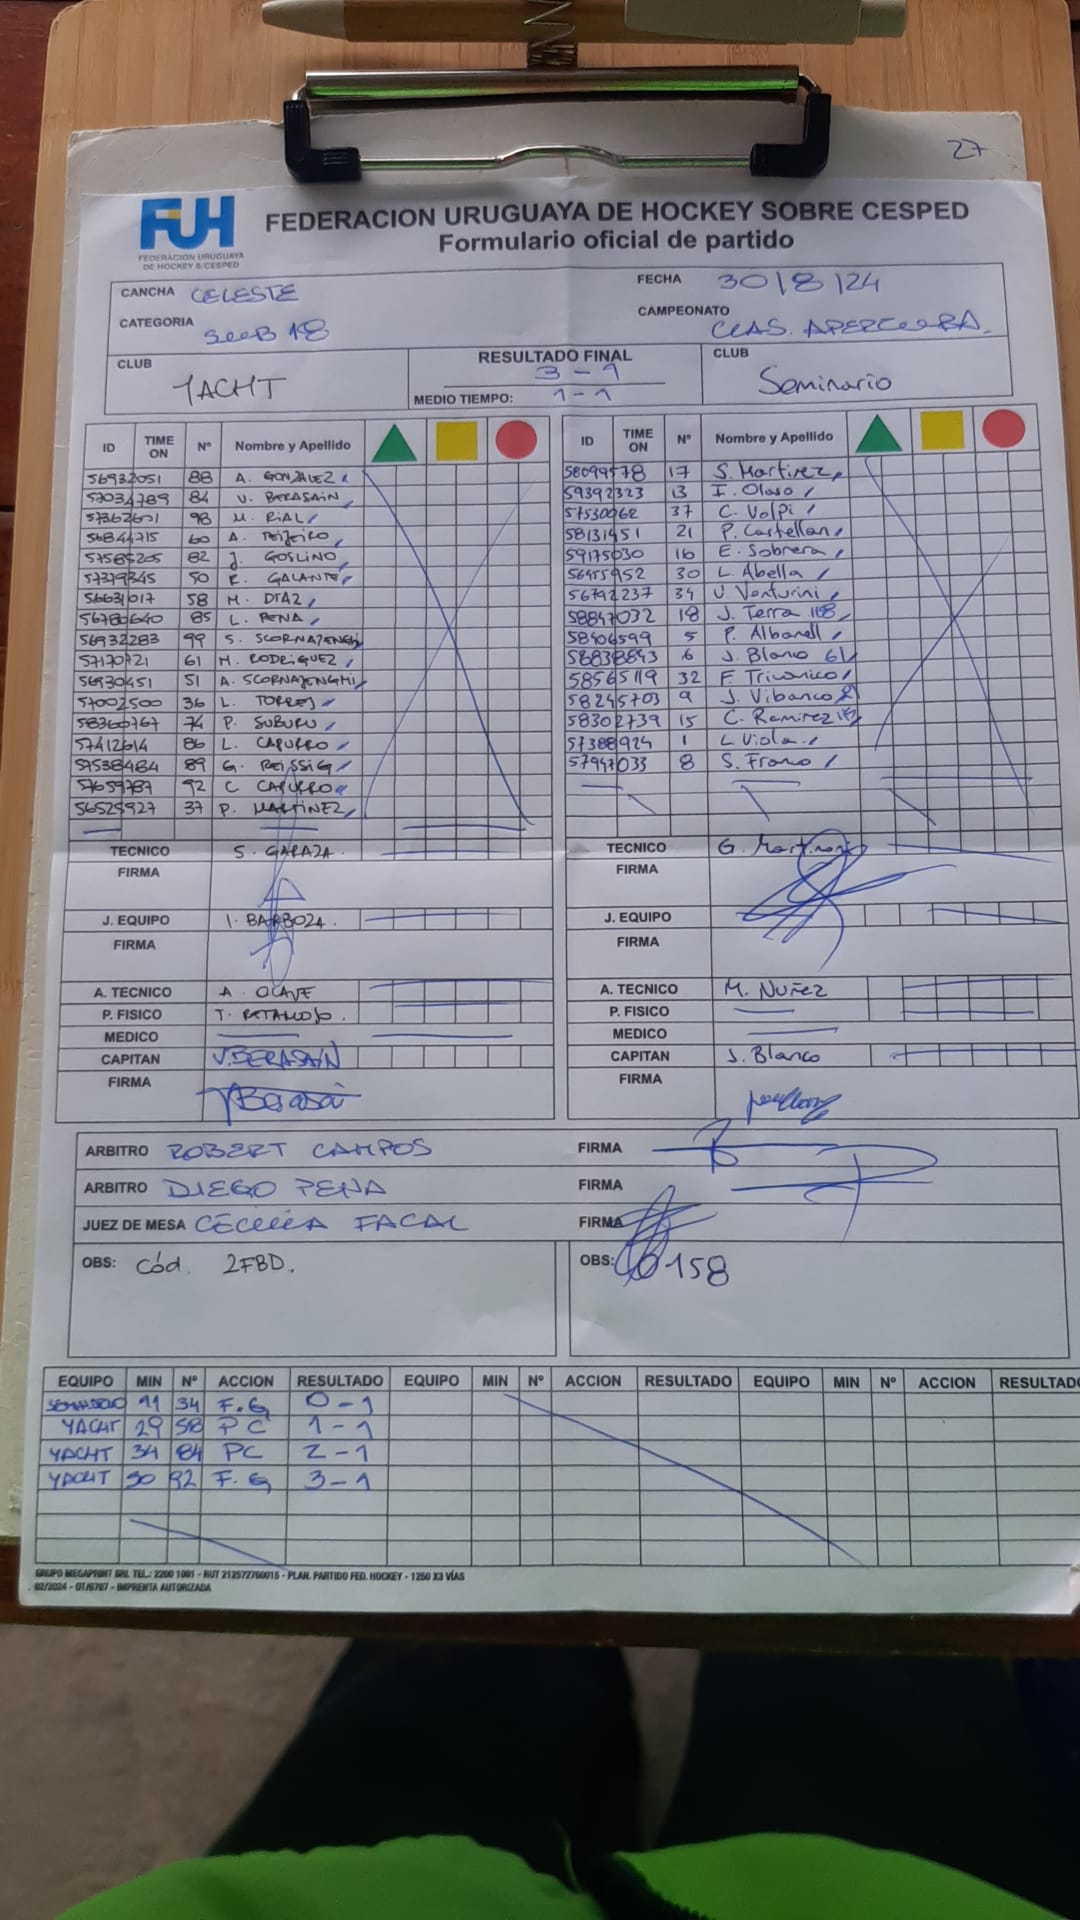 27
FUH
FEDERACION URUGUAYA
DE HOCKEY S/CESPED
FEDERACION URUGUAYA DE HOCKEY SOBRE CESPED
Formulario oficial de partido
CANCHA CELESTE FECHA 30/8/24
CATEGORIA SUB 18 CAMPEONATO CLAS. APERTURA.
CLUB YACHT RESULTADO FINAL 3-1 CLUB Seminario
MEDIO TIEMPO: 1-1
ID TIME ON Nº Nombre y Apellido ID TIME ON Nº Nombre y Apellido
56932051 88 A. GONZALEZ 58099578 17 S. Martinez
57034789 84 V. BERASAIN 59392323 13 I. Olaso
57362601 98 M. RIAL 57530062 37 C. Volpi
56844715 60 A. TEIJEIRO 58131451 21 P. Castellan
57585205 82 J. GOSLINO 59175030 16 E. Sobrera
57379345 50 R. GALANTE 56455952 30 L. Abella
56631017 58 M. DIAZ 56792237 34 V. Venturini
56780640 85 L. PENA 58847032 18 J. Terra
56932283 99 S. SCORNAJENGHI 58406599 5 P. Albanell
57170721 61 M. RODRIGUEZ 58838843 6 J. Blanco
56930451 51 A. SCORNAJENGHI 58565119 32 F. Trivonico
57002500 36 L. TORRES 58245703 9 J. Vibanco
58360767 74 P. SUBURU 58302739 15 C. Ramirez
57412614 86 L. CAPURRO 57388924 1 L. Viola
57538484 89 G. REISSIG 57947033 8 S. Franco
57659787 92 C CAPURRO
56525927 37 P. MARTINEZ
TECNICO S. GARAZA. TECNICO G. Martinano
FIRMA FIRMA
J. EQUIPO I. BARBOZA. J. EQUIPO
FIRMA FIRMA
A. TECNICO A. OLAVE A. TECNICO M. NUÑEZ
P. FISICO T. P. FISICO
MEDICO MEDICO
CAPITAN V. BERASAIN CAPITAN J. Blanco
FIRMA VBerasai FIRMA
ARBITRO ROBERT CAMPOS FIRMA
ARBITRO DIEGO PENA FIRMA
JUEZ DE MESA CECILIA FACAL FIRMA
OBS: Cód. 2FBD. OBS: 0158
EQUIPO MIN Nº ACCION RESULTADO EQUIPO MIN Nº ACCION RESULTADO EQUIPO MIN Nº ACCION RESULTADO
SEMINARIO 11 34 F.G 0-1
YACHT 29 58 PC 1-1
YACHT 34 84 PC 2-1
YACHT 50 92 F.G 3-1
GRUPO MEGAPRINT SRL TEL.: 2200 1001 - RUT 212572760015 - PLAN. PARTIDO FED. HOCKEY - 1250 X3 VÍAS
02/2024 - OT/6767 - IMPRENTA AUTORIZADA